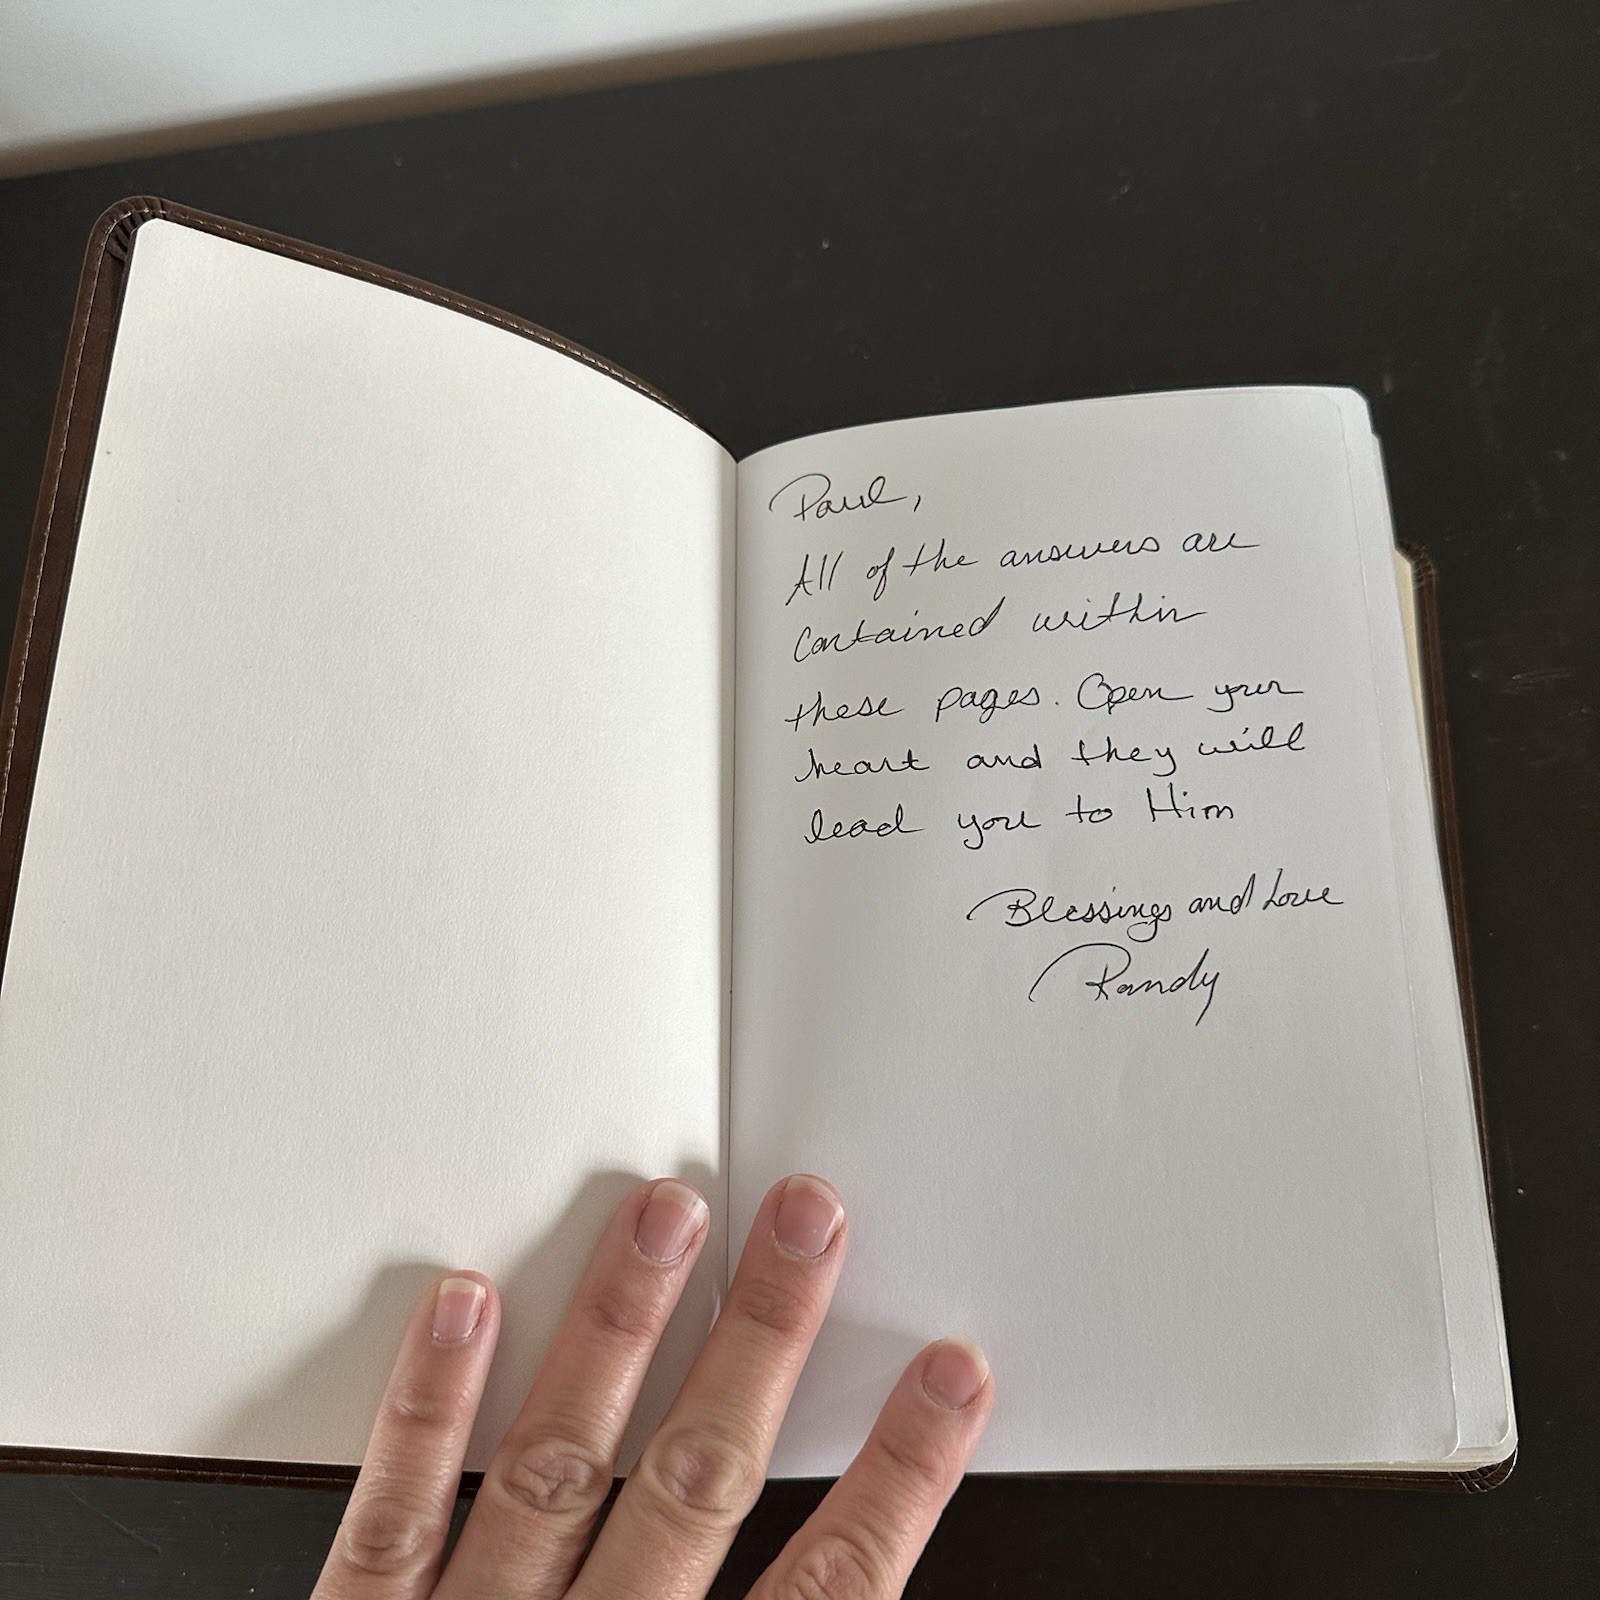 Paul,
All of the answers are
contained within
these pages. Open your
heart and they will
lead you to Him
Blessings and Love
Randy